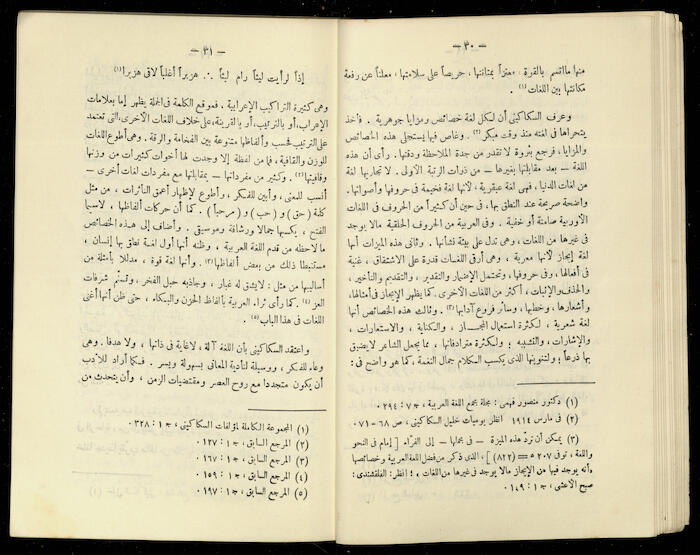 — ٣٠ —
منها مااتسم بالقرة، معتزاً بمتانتها، حريصاً على سلامتها، معلناً عن رفعة
مكانتها بين اللغات (١) .
وعرف السكاكيني أن لكل لغة خصائص ومزايا جوهرية . فأخذ
يتحراها في لغته منذ وقت مبكر (٢) . وغاص فيها يستجلى هذه الخصائص
والمزايا، فرجع بثروة لا تقدر من جدة الملاحظة ودقتها . رأى أن هذه
اللغة — بعد مقابلتها بغيرها — من ذرات الرتبة الأولى . لا تجاريها لغة
من لغات الدنيا ، فهى لغة عبقرية ، لأنها لغة فخيمة في حروفها وأصواتها .
واضحة صريحة عند النطق بها ، فى حين أن كثيراً من الحروف فى اللغات
الأوربية صامتة أو خفية . وفى العربية من الحروف الحلقية مالا يوجد
فى غيرها من اللغات ، وهى تدل على بيئة نشأتها . وثانى هذه الميزات أنها
لغة إيجاز لأنها معربة ، وهى أرقى اللغات قدرة على الاشتقاق ، غنية
فى أفعالها ، وفى حروفها ، وتحتمل الإضمار والتقدير ، والتقديم والتأخير ،
والحذف والإثبات ، أكثر من اللغات الأخرى . كما يظهر الإيجاز فى أمثالها ،
وأشعارها ، وخطبها ، وسائر فروع آدابها (٣) . وثالث هذه الخصائص أنها
لغة شعرية ، لكثرة استعمال المجــاز ، والكناية ، والاستعارات ،
والإشارات ، والتشبيه ؛ ولكثرة مترادفاتها ، مما يجعل الشاعر لايضيق
بها ذرعاً ؛ ولتنوينها الذى يكسب الكلام جمال النغمة ، كما هو واضح فى :
(١) دكتور منصور فهمى : مجلة مجمع اللغة العربية ، ج ٧ : ٢٩٤ .
(٢) فى مارس ١٩١٤ انظر يوميات خليل السكاكينى ، ص ٦٨ — ٧١ .
(٣) يمكن أن ترد هذه الميزة — فى مجملها — إلى الفراء [ إمام فى النحو
واللغة ، توفى ٢٠٧ ه‍ == (٨٢٢) ] ، الذى ذكر من فضل اللغة العربية وخصائصها
« أنه يوجد فيها من الإيجاز مالا يوجد فى غيرها من اللغات ، ؛ انظر : القلقشندى ،
صبح الأعشى ، ج ١ : ١٤٩ .
— ٣١ —
إذاً لرأيت ليثاً رام ليثاً ∴ هزبراً أغلباً لاقى هزبرا (١)
وهى كثيرة التراكيب الإعرابية . فموقع الكلمة فى الجملة يظهر إما بعلامات
الإعراب ، أو بالترتيب ، أو بالقرينة ، على خلاف اللغات الأخرى ، التى تعتمد
على الترتيب لحسب وألفاظها متنوعة بين الفخامة والرقة . وهى أطوع اللغات
للوزن والقافية ، فما من لفظة إلا وجدت لها أخوات كثيرات من وزنها
وقافيتها (٢) . وكثير من مفرداتها — بمقابلتها مع مفردات لغات أخرى —
أنسب للمعنى ، وأبين للفكر ، وأطوع لإظهار أعمق التأثرات ، من مثل
كلمة ( حق ) و ( حب ) و ( مرحباً ) . كما أن حركات ألفاظها ، لاسيما
الفتح ، يكسبها جمالا ورشاقة وموسيقى . وأضاف إلى هذه الخصائص
ما لاحظه من قدم اللغة العربية ، وظنه أنها أول لغة نطق بها إنسان ،
مستنبطا ذلك من بعض ألفاظها (٣) . وأنها لغة قوة ، مدللا بأمثلة من
أساليبها من مثل : لايشق له غبار ، وجاذبه حبل الفخر ، وتسنّم شرفات
العز (٤) . كما رأى ثراء العربية بألفاظ الحزن والبكاء ، حتى ظن أنها أغنى
اللغات فى هذا الباب (٥) .
واعتقد السكاكينى بأن اللغة آلة ، لاغاية فى ذاتها ، ولا هدفا . وهى
وعاء للفكر ، ووسيلة لتأدية المعانى بسهولة ويسر . فكما أراد للأدب
أن يكون متجددا مع روح العصر ومقتضيات الزمن ، وأن يتحدث من
(١) المجموعة الكاملة لمؤلفات السكاكينى ، ج ١ : ٣٢٨ .
(٢) المرجع السابق ، ج ١ : ١٢٧ .
(٣) المرجع السابق ، ج ١ : ١٦٧ .
(٤) المرجع السابق ، ج ١ : ١٥٩ .
(٥) المرجع السابق ، ج ١ : ١٩٧ .